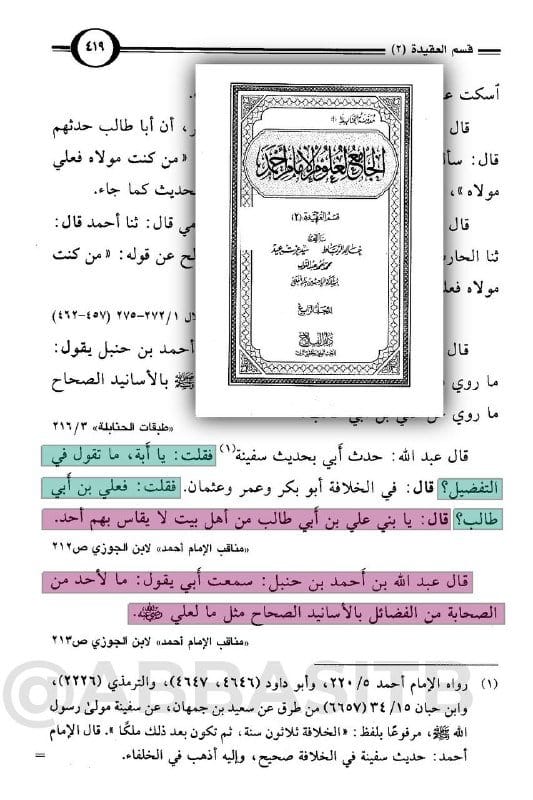 قسم العقيدة (٢)
٤١٩
أسكت
قال
، أن أبا طالب حدثهم
قال: سأل
« من كنت مولاه فعلي
مولاه »،
لحديث كما جاء.
قال
مي قال: ثنا أحمد قال:
ثنا الحار
لح عن قوله: « من كنت
مولاه فعلي
١/ ٢٧٢-٢٧٥ (٤٥٧-٤٦٢)
قال
أحمد بن حنبل يقول:
ما روي
ﷺ بالأسانيد الصحاح
ما روي
«طبقات الحنابلة» ٢١٦/٣
الجامع لعلوم الإمام أحمد
قسم العقيدة (٢)
تأليف
خالد الرباط سيد عزت عيد
المجلد الرابع
دار الفلاح
قال عبد الله: حدث أبي بحديث سفينة(١) فقلت: يا أبة، ما تقول في
التفضيل؟ قال: في الخلافة أبو بكر وعمر وعثمان. فقلت: فعلي بن أبي
طالب؟ قال: يا بني علي بن أبي طالب من أهل بيت لا يقاس بهم أحد.
«مناقب الإمام أحمد» لابن الجوزي ص٢١٢
قال عبد الله بن أحمد بن حنبل: سمعت أبي يقول: ما لأحد من
الصحابة من الفضائل بالأسانيد الصحاح مثل ما لعلي
«مناقب الإمام أحمد» لابن الجوزي ص٢١٣
(١) رواه الإمام أحمد ٥/ ٢٢٠، وأبو داود (٤٦٤٦، ٤٦٤٧)، والترمذي (٢٢٢٦)،
وابن حبان ١٥/ ٣٤ (٦٦٥٧) من طرق عن سعيد بن جمهان، عن سفينة مولى رسول
الله ﷺ، مرفوعًا بلفظ: « الخلافة ثلاثون سنة، ثم تكون بعد ذلك ملكًا ». قال الإمام
أحمد: حديث سفينة في الخلافة صحيح، وإليه أذهب في الخلفاء.
=
@ABBASITB